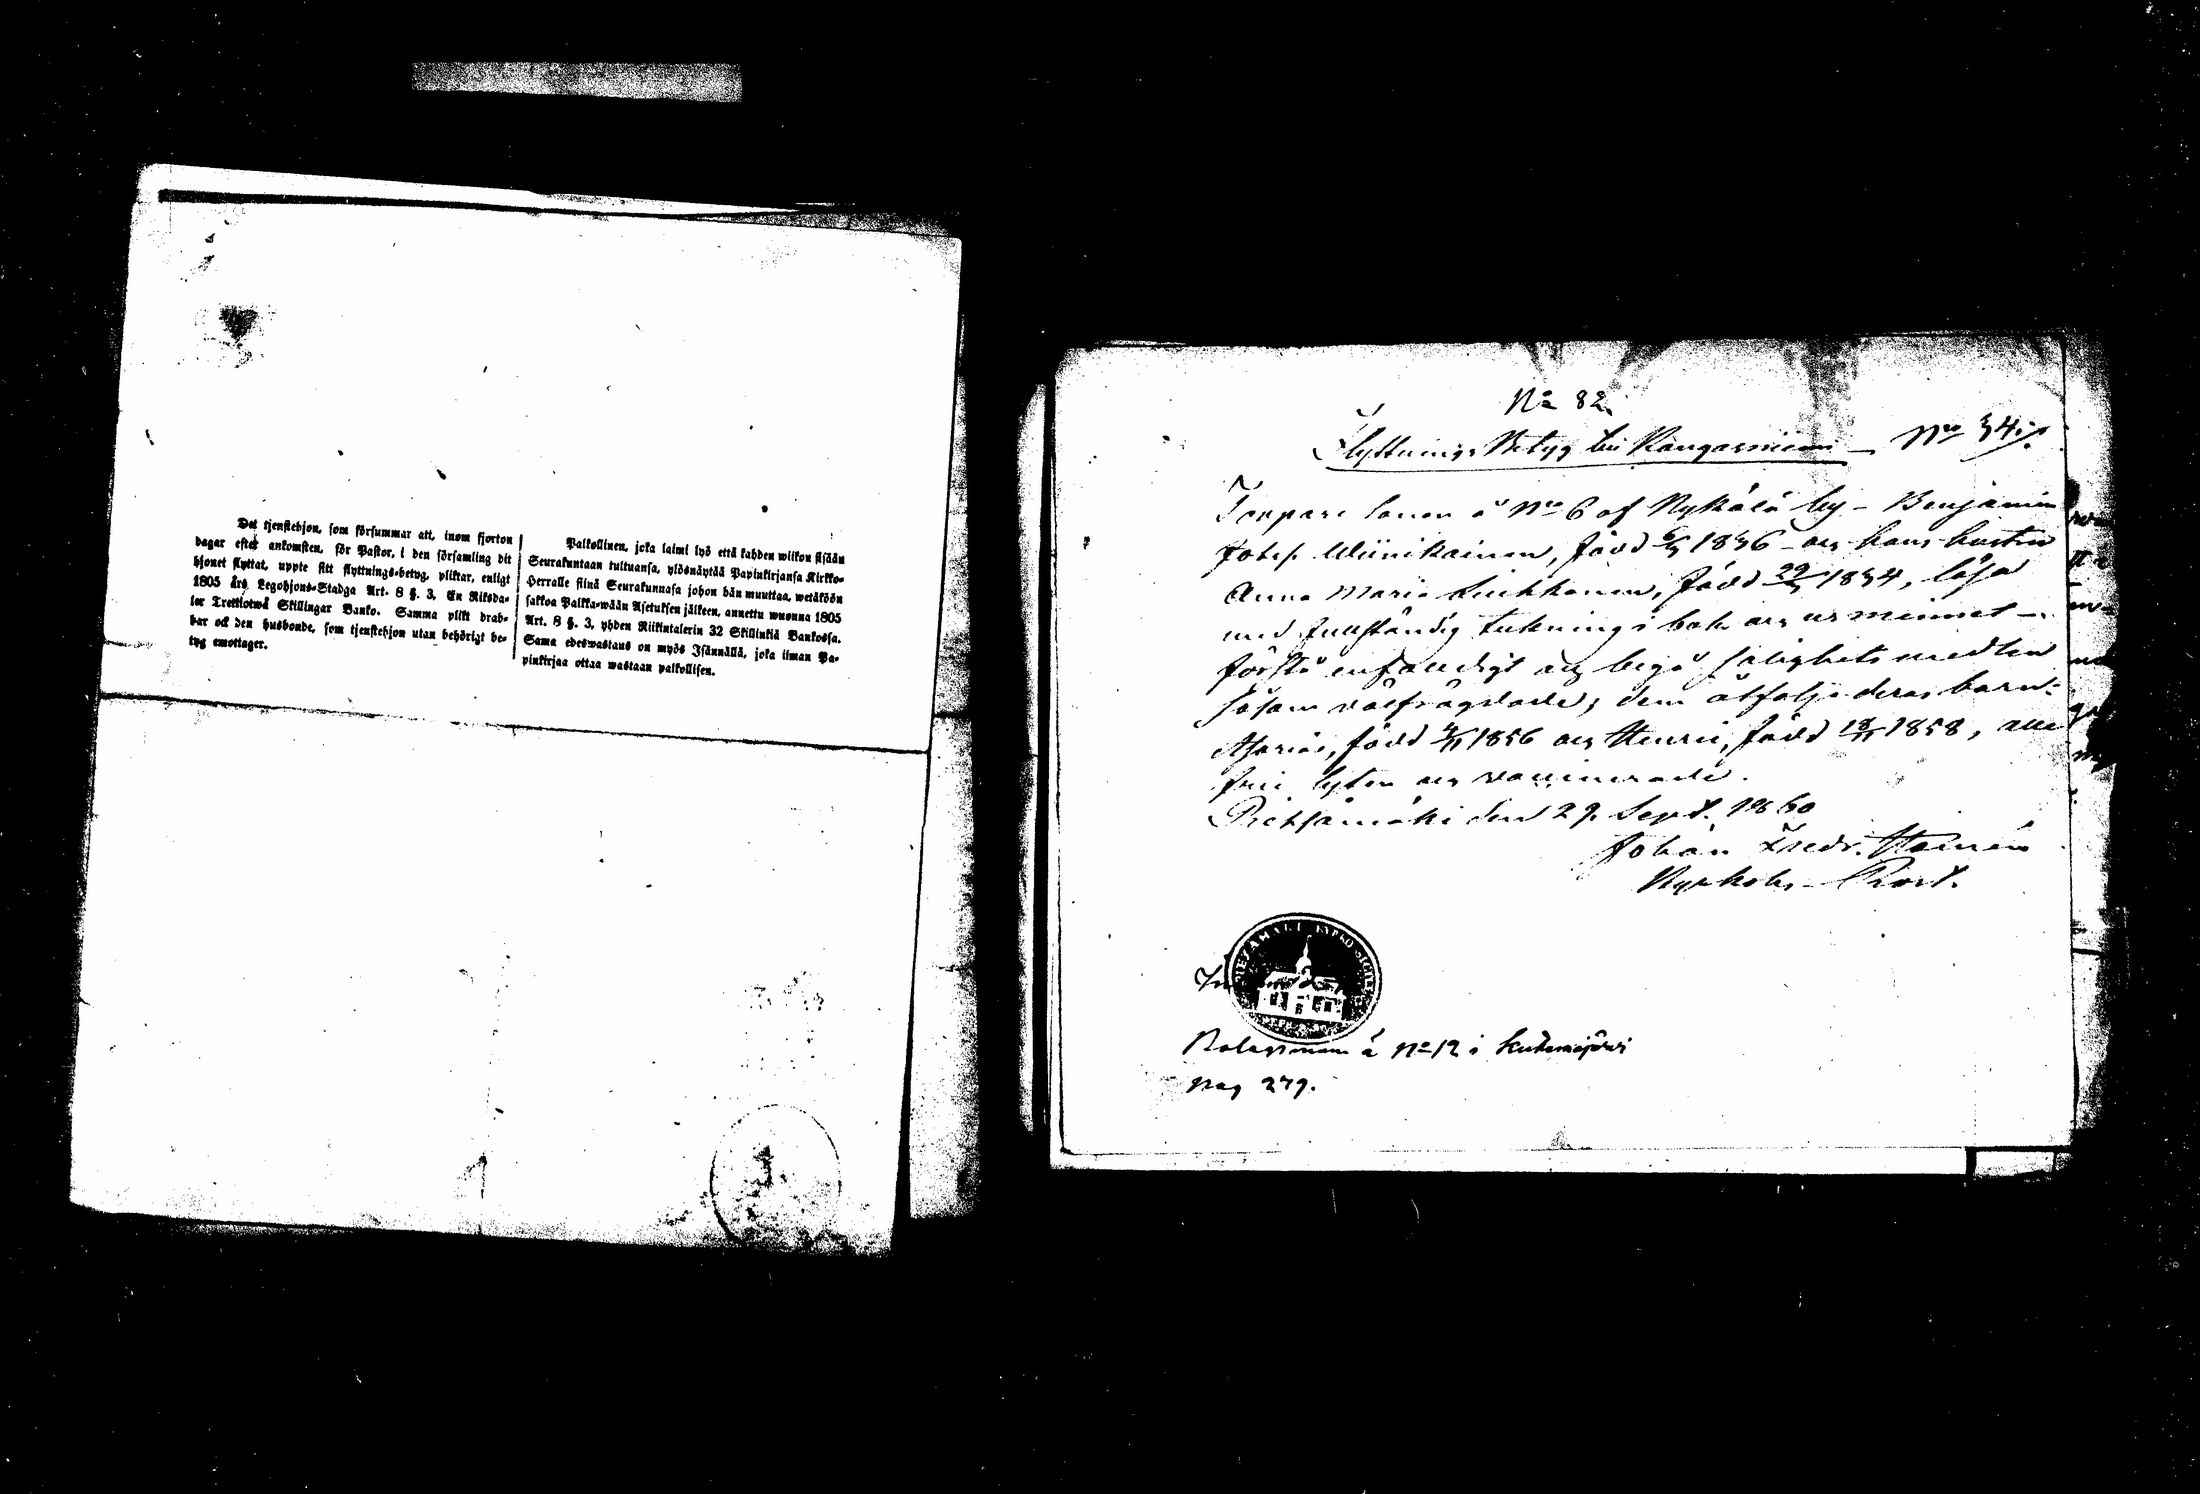 Det tjenstehjon, som försummar att, inom fjorton
dagar efter ankomsten, för Pastor, i den församling dit
hjonet flyttat, uppte sitt flyttnings-betyg, pliktar, enligt
1805 års Legohjons-Stadga Art. 8 §. 3, En Riksda-
ler Trettiotwå Skillingar Banko. Samma plikt drab-
bar ock den husbonde, som tjenstehjon utan behörigt be-
tyg emottager.
Palkollinen, joka laimi lyö että kahden wiikon sisään
Seurakuntaan tultuansa, ylösnäytää Papinkirjansa Kirkko-
Herralle siinä Seurakunnasa johon hän muuttaa, wetäköön
sakkoa Palkka-wään Asetuksen jälkeen, annettu wuonna 1805
Art. 8 §. 3, yhden Riikintalerin 32 Skillinkiä Bankossa.
Sama edeswastaus on myös Isännällä, joka ilman Pa-
pinkirjaa ottaa wastaan palkollisen.
No 82.
Flyttnings Betyg till Kangasniemi — No 34
Torpare sonen å No 6 af Nykälä by – Benjamin
Johs. Wiinikainen, född 1836 – och hans hustru
Anna Maria Luukkonen, född 1834, läsa
med fullständig tukning i bok och ur minnet –
förstå enfaldigt och begå salighets medlen
såsom wälfrägdade; dem åtfölja deras barn:
Asarias, född 1856 och Henric, född 1858, alla
fria lyten och vaccinerade.
Pieksämäki den 29 Sept. 1860
Johan Fredr.
Kyrkoh. Prost.
å No 12 i Kutemajärvi
pag 279.